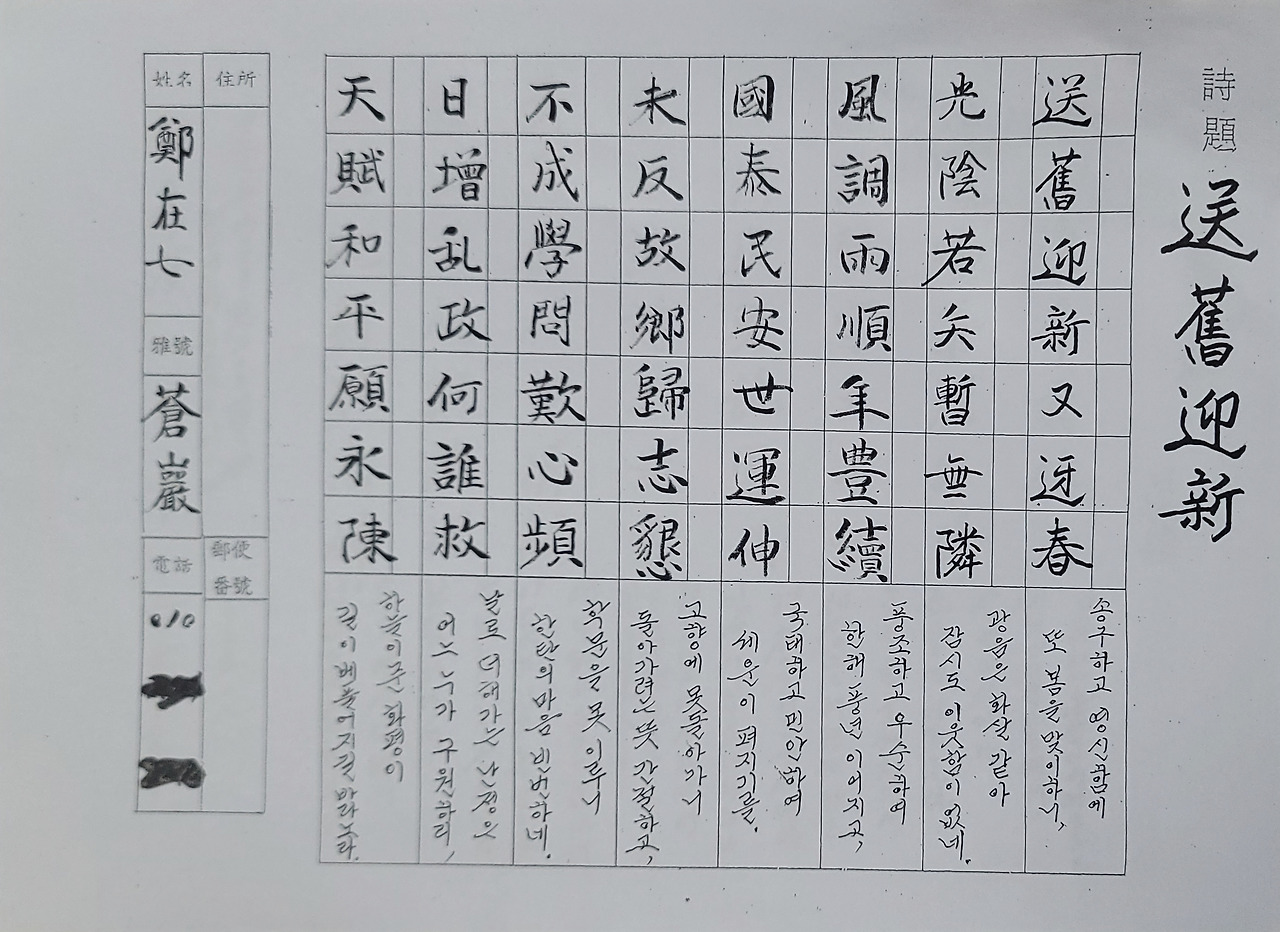 詩題 送舊迎新
送舊迎新又迓春
송구하고 영신함에
또 봄을 맞이하니,
光陰若矢暫無隣
광음은 화살 같아
잠시도 이웃함이 없네.
風調雨順年豊續
풍조하고 우순하여
한해 풍년 이어지고,
國泰民安世運伸
국태하고 민안하여
세운이 펴지기를.
未反故鄉歸志懇
고향에 못돌아가니
돌아가려는 뜻 간절하고,
不成學問歎心頻
학문을 못 이루니
한탄의 마음 빈번하네.
日增乱政何誰救
날로 더해가는 난정은
어느 누가 구원하리,
天賦和平願永陳
하늘이 준 화평이
길이 베풀어지길 바라노라.
住所
郵便番號
姓名
鄭在七
雅號
蒼巖
電話
010